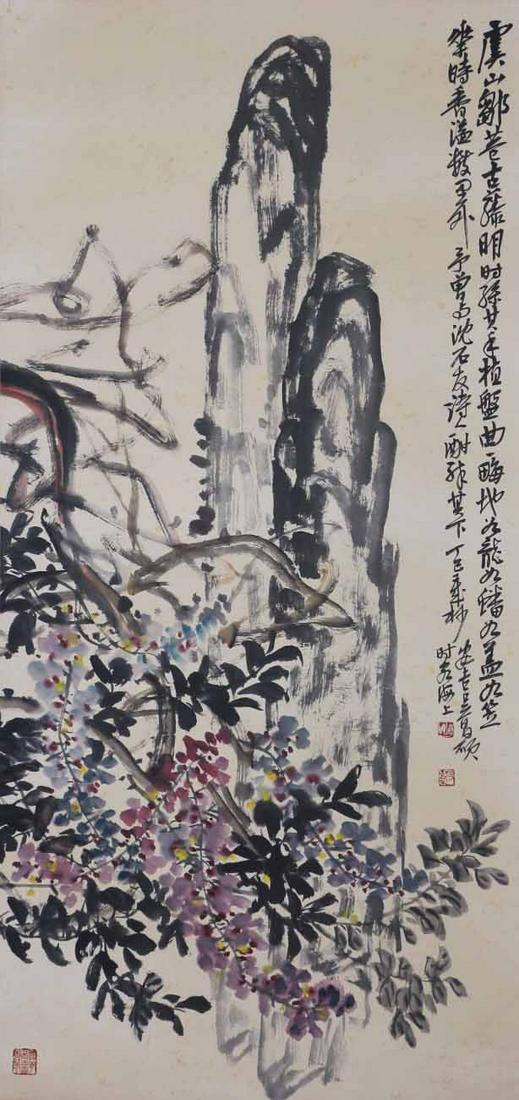 虞山鄒巷古藤明時孫某手植盤曲畮地如龍如蟠如蓋如笠
時香溢數里外予曾與沈石友詩酣醉其下丁巳歲秒
安吉吳昌碩
時客海上